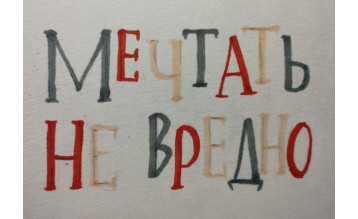 МЕЧТАТЬ
НЕ ВРЕДНО